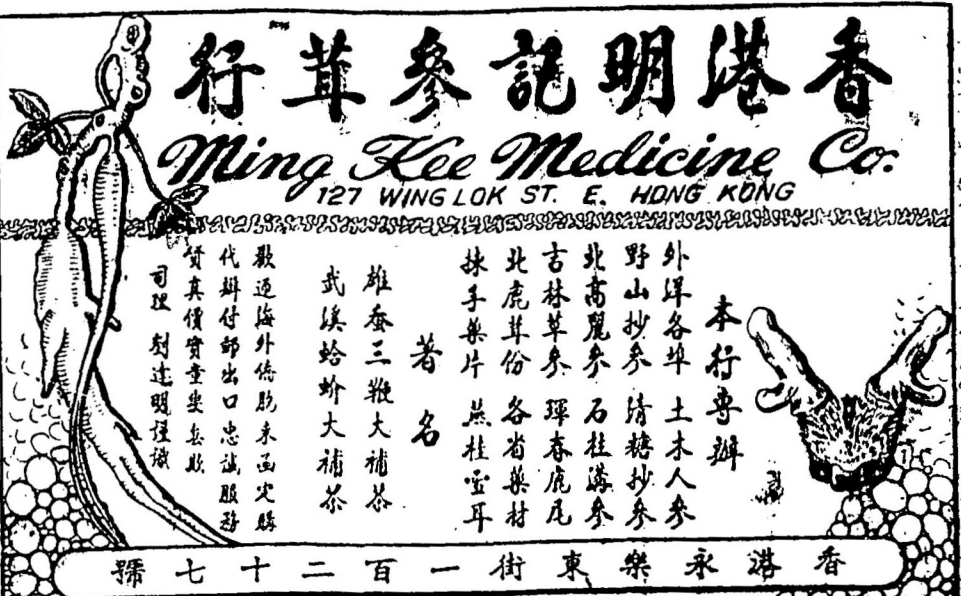 香港明記參茸行
Ming Kee Medicine Co.
127 WING LOK ST. E. HONG KONG
本行專辦
外洋各埠 土木人參
野山抄參 清糖抄參
北高麗參 石柱溝參
吉林草參 琿春鹿尾
北鹿茸份 各省藥材
揀手藥片 燕桂雪耳
著名
雄蚕三鞭大補茶
武溪蛤蚧大補茶
歡迎海外僑胞来函定購
代辦付郵出口忠誠服務
貨真價實童叟無欺
司理 劉達明謹識
香港永樂東街一百二十七號